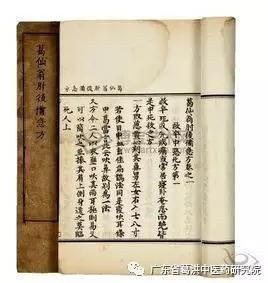 葛仙翁肘後備急方
葛仙翁肘後備急方卷之一
救卒中惡死方第一
救卒死或先病痛或常居寢卧奄忽而絶皆
是中死救之方
一方取葱黄心刺其鼻男左女右入七八寸
若使目中血出佳扁鵲法同是後吹耳條
中葛當言此云吹鼻故别為一法
又方令二人以衣壅口吹其兩耳極則易又
可以筒吹之並捧其肩上側身遠之莫臨
死人上
广东省葛洪中医药研究院